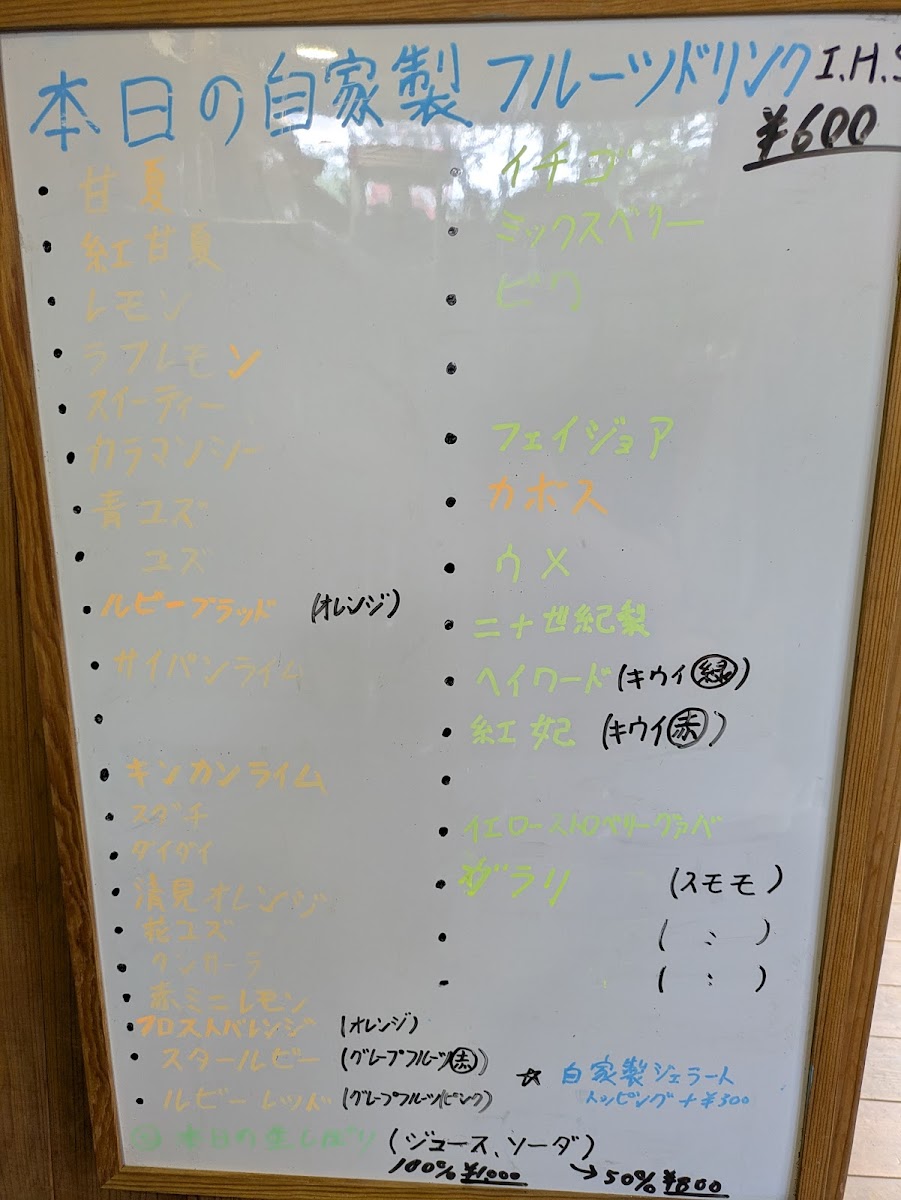 本日の自家製 フルーツドリンク I.H.S
¥600
・ 甘夏
・ 紅甘夏
・ レモン
・ ラフレモン
・ スイーティー
・ カラマンシー
・ 青ユズ
・ ユズ
・ ルビーブラッド (オレンジ)
・ サイパンライム
・
・ キンカンライム
・ スダチ
・ ダイダイ
・ 清見オレンジ
・ 花ユズ
・ タンカーラ
・ 赤ミニレモン
・ フロストバレンジ (オレンジ)
・ スタールビー (グレープフルーツ(赤))
・ ルビーレッド (グレープフルーツ(ピンク)
・ イチゴ
・ ミックスベリー
・ ビワ
・
・ フェイジョア
・ カボス
・ ウメ
・ 二十世紀梨
・ ヘイワード (キウイ(緑))
・ 紅妃 (キウイ(赤))
・
・ イエローストロベリーグァバ
・ ガラリ (スモモ)
・ ( : )
・ ( : )
☆ 自家製ジェラート
トッピング+¥300
本日の生しぼり (ジュース、ソーダ)
100% ¥1000 → 50% ¥800